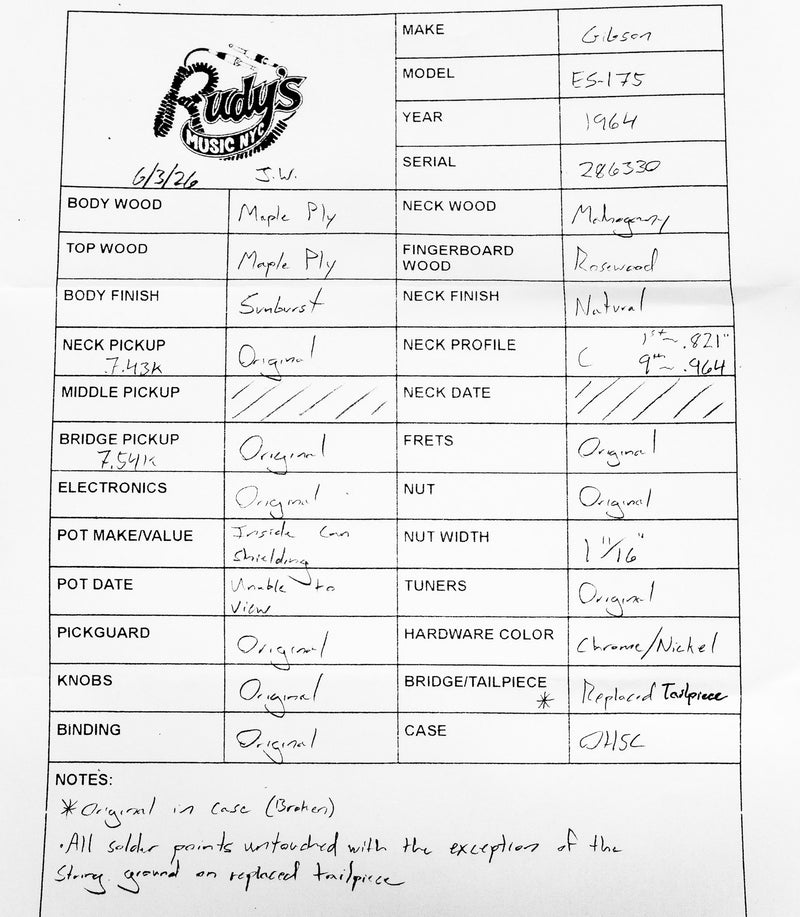 Rudy's
MUSIC NYC
6/3/26 J.W.
MAKE Gibson
MODEL ES-175
YEAR 1964
SERIAL 286330
BODY WOOD Maple Ply NECK WOOD Mahogany
TOP WOOD Maple Ply FINGERBOARD WOOD Rosewood
BODY FINISH Sunburst NECK FINISH Natural
NECK PICKUP 7.43K Original NECK PROFILE C 1st ~ .821" 9th ~ .964
MIDDLE PICKUP NECK DATE
BRIDGE PICKUP 7.54K Original FRETS Original
ELECTRONICS Original NUT Original
POT MAKE/VALUE Inside Can Shielding NUT WIDTH 1 11/16"
POT DATE Unable to View TUNERS Original
PICKGUARD Original HARDWARE COLOR Chrome/Nickel
KNOBS Original BRIDGE/TAILPIECE * Replaced Tailpiece
BINDING Original CASE OHSC
NOTES:
* Original in case (Broken)
• All solder points untouched with the exception of the
String ground on replaced tailpiece